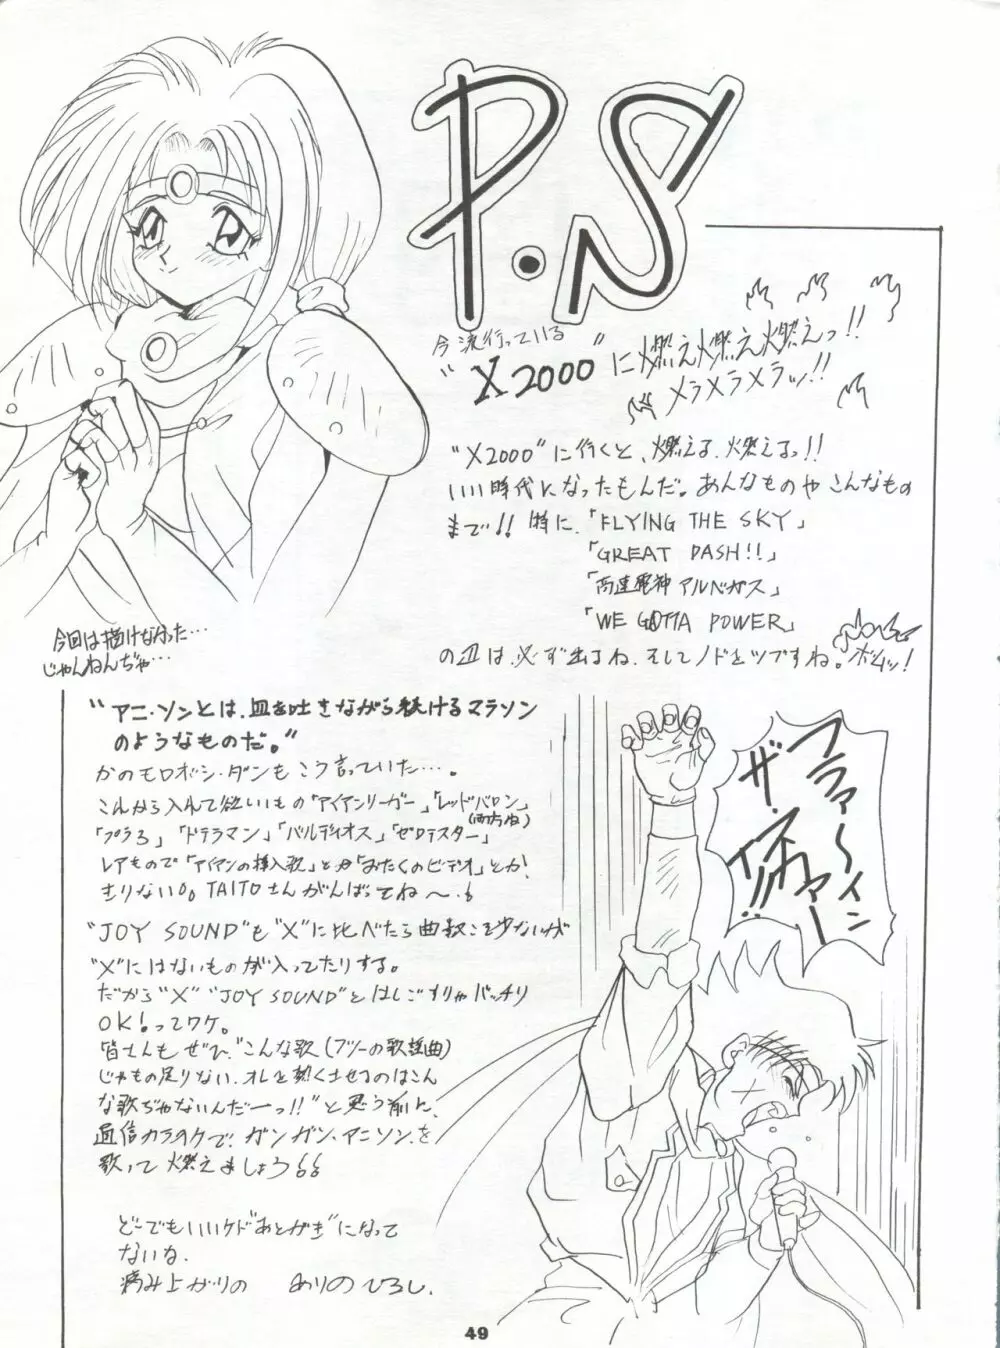 P.S
今流行っている
"X2000"に燃え燃え燃えっ!!
メラメラメラッ!!
"X2000"に行くと、燃える、燃えるっ!!
いい時代になったもんだ。あんなものやこんなもの
まで!! 特に、「FLYING THE SKY」
「GREAT DASH!!」
「高速電神アルベガス」
「WE GOTTA POWER」
の皿は必ず出るね、そしてノドもツブすね。ボムッ!
今回は描けなかった…
じゃんねんぢゃ…
"アニ・ソンとは、血を吐きながら続けるマラソン
のようなものだ。"
かのモロボシ・ダンもこう言っていた…。
こんから入れて欲しいもの「アイアンリーガー」「レッドバロン」
(両方ね)
「プラ3」「ドテラマン」「バルディオス」「ゼロテスター」
レアもので「アイアンの挿入歌」とか「おたくのビデオ」とか!
きりない。TAITOさんがんばってね〜。
"JOY SOUND"も"X"に比べたら曲数こそ少ないが
"X"にはないものが入ってたりする。
だから"X" "JOY SOUND"とはしごすりゃバッチリ
OK!ってワケ。
皆さんもぜひ、"こんな歌(フツーの歌謡曲)
じゃもの足りない、オレを熱くさせるのはこん
な歌ぢゃないんだーっ!!"と思う前に、
通信カラオケで、ガンガン、アニソン、を
歌って燃えましょう!!
どーでもいいケド"あとがき"になって
ないな.
病み上がりの ありのひろし.
ファ〜イン
ザ・
スカァー
イ!!
49